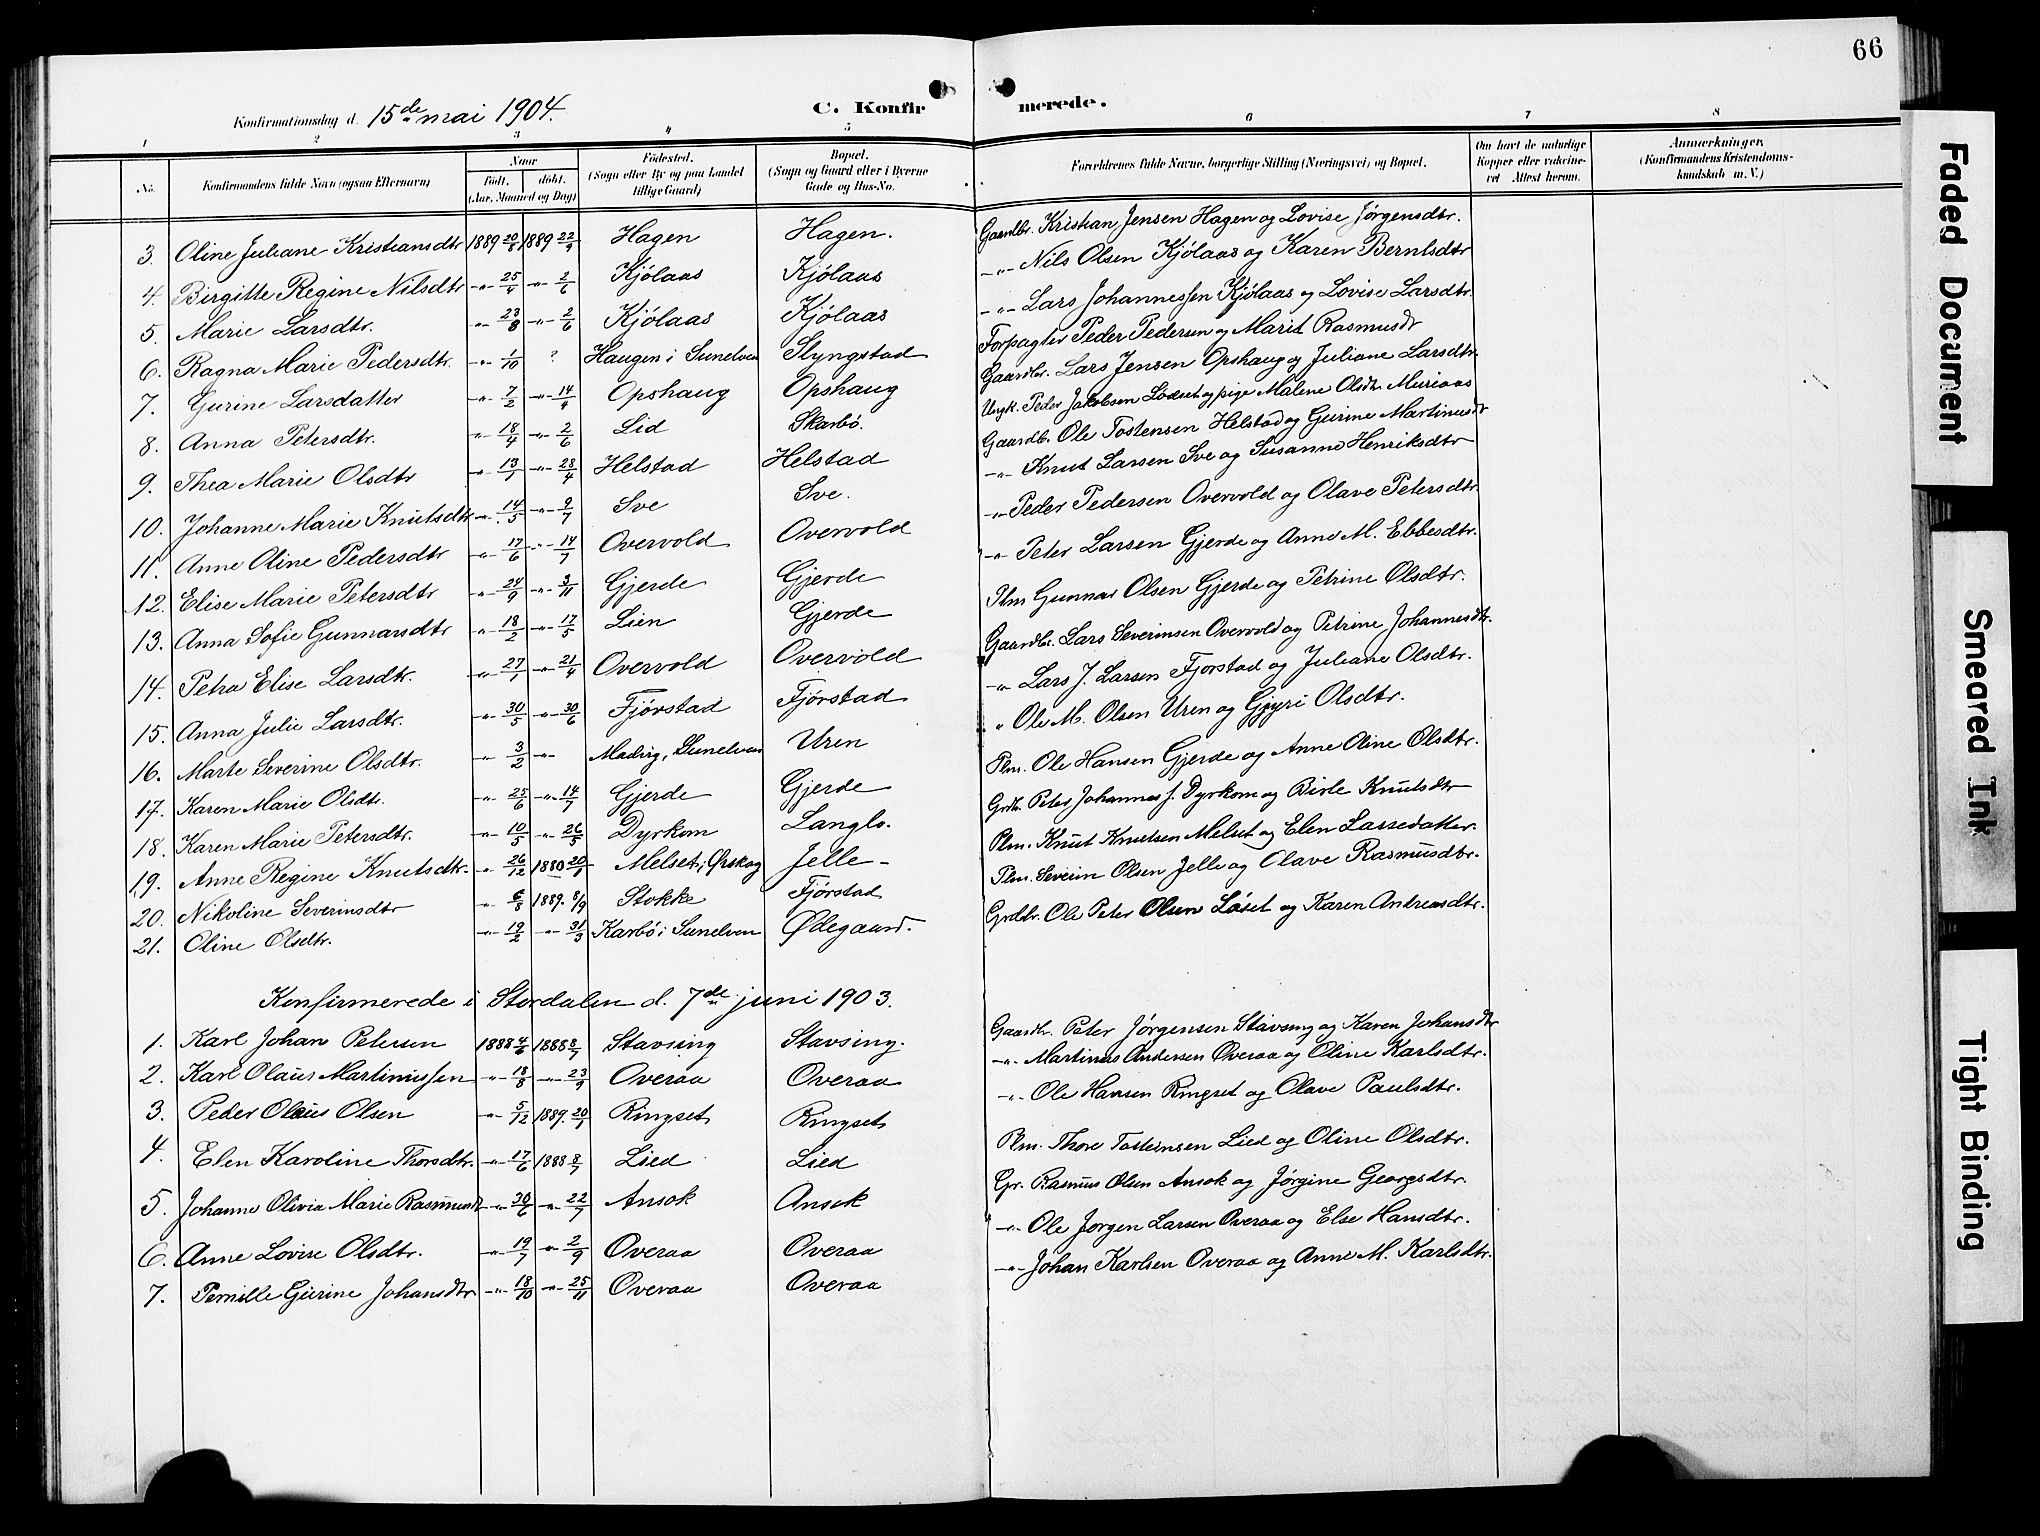 66
Konfirmationsdag d. 15de mai 1904. C. Konfirmerede.
1 2 3 4 5 6 7 8
No. Konfirmandens fulde Navn (ogsaa Efternavn) Naar født. døbt. (Aar, Maaned og Dag) Fødested. (Sogn eller By og paa Landet tillige Gaard) Bopæl. (Sogn og Gaard eller i Byerne Gade og Hus-No. Forældrenes fulde Navne, borgerlige Stilling (Næringsvei) og Bopæl. Om havt de naturlige Kopper eller vakcineret Attest herom. Anmærkninger. (Konfirmandens Kristendomskundskab m. V.)
3. Oline Juliane Kristiansdtr 1889 20/8 1889 22/9 Hagen Hagen. Gaardbr. Kristian Jensen Hagen og Lovise Jørgensdtr.
4. Birgitte Regine Nilsdtr -"- 25/4 -"- 2/6 Kjølaas Kjølaas -"- Nils Olsen Kjølaas og Karen Berntsdtr
5. Marie Larsdtr. -"- 23/8 -"- 2/6 Kjølaas Kjølaas -"- Lars Johannessen Kjølaas og Lovise Larsdtr.
6. Ragna Marie Pedersdtr. -"- 1/10 ? Haugen i Sunelven Styngstad Forpagter Peder Pedersen og Marit Rasmusdr
7. Gurine Larsdatter -"- 7/2 -"- 14/4 Opshaug Opshaug Gaardbr. Lars Jensen Opshaug og Juliane Larsdtr.
8. Anna Petersdtr. -"- 18/4 -"- 2/6 Lid Skarbø. Ungk. Peder Jakobsen Lødset og pige Malene Olsdtr. Muriaas
9. Thea Marie Olsdtr -"- 13/1 -"- 28/4 Helstad Helstad Gaardb. Ole Tostensen Helstad og Gurine Martinusdr
10. Johanne Marie Knutsdtr -"- 14/5 -"- 9/7 Sve Sve. -"- Knut Larsen Sve og Susanne Henriksdtr
11. Anne Oline Pedersdtr -"- 17/6 -"- 14/7 Overvold Overvold -"- Peder Pedersen Overvold og Olave Petersdtr.
12. Elise Marie Petersdtr -"- 24/9 -"- 3/11 Gjerde Gjerde -"- Peter Larsen Gjerde og Anne M. Ebbesdtr.
13. Anna Sofie Gunnarsdtr -"- 18/2 -"- 17/5 Lien Gjerde Plm Gunnar Olsen Gjerde og Petrine Olsdtr.
14. Petra Elise Larsdtr. -"- 27/1 -"- 21/4 Overvold Overvold Gaardbr. Lars Severinsen Overvold og Petrine Johannesdtr.
15. Anna Julie Larsdtr. -"- 30/5 -"- 30/6 Fjørstad Fjørstad -"- Lars J. Larsen Fjørstad og Juliane Olsdtr.
16. Marte Severine Olsdtr. -"- 3/2 -"- Madvig, Sunelven Uren " Ole M. Olsen Uren og Gjyri Olsdtr.
17. Karen Marie Olsdtr. -"- 25/6 -"- 14/7 Gjerde Gjerde Plm. Ole Hansen Gjerde og Anne Oline Olsdtr.
18. Karen Marie Petersdtr. -"- 10/5 -"- 26/5 Dyrkorn Langlo. Grdb. Peter Johannes J. Dyrkorn og Birte Knutsdtr
19. Anne Regine Knutsdtr. -"- 26/12 1880 20/1 Melset i Ørskog Jelle - Plm. Knut Knutsen Melset og Elen Lassedatter.
20. Nikoline Severinsdtr " 6/8 1889. 8/9 Stokke Fjørstad Plm. Severin Olsen Jelle og Olave Rasmusdtr.
21. Oline Olsdtr. -"- 19/2 -"- 31/3 Karbø i Sunelven Ødegaard. Grdbr. Ole Peter Olsen Løset og Karen Andreasdtr.
Konfirmerede i Stordalen d. 7de juni 1903.
1. Karl Johan Petersen 1888 4/6 1888 8/7 Stavsing Stavsing. Gaardbr. Peter Jørgensen Stavsing og Karen Johansdtr
2. Karl Olaus Martinussen -"- 18/8 -"- 23/9 Overaa Overaa -"- Martinus Andersen Overaa og Oline Karlsdtr.
3. Peder Olaus Olsen -"- 5/12 1889. 20/1 Ringset Ringset -"- Ole Hansen Ringset og Olave Paulsdtr.
4. Elen Karoline Thorsdtr. -"- 17/6 1888 8/7 Lied Lied Plm. Thore Tosteinsen Lied og Oline Olsdtr.
5. Johanne Olivia Marie Rasmusdr -"- 30/6 -"- 22/7 Ansok Ansok Gr. Rasmus Olsen Ansok og Jørgine Georgsdtr.
6. Anne Lovise Olsdtr. -"- 19/7 -"- 2/9 Overaa Overaa -"- Ole Jørgen Larsen Overaa og Else Hansdtr.
7. Pernille Gurine Johansdtr -"- 18/10 -"- 25/11 Overaa Overaa -"- Johan Karlsen Overaa og Anne M. Karlsdtr.
Faded Document
Smeared Ink
Tight Binding